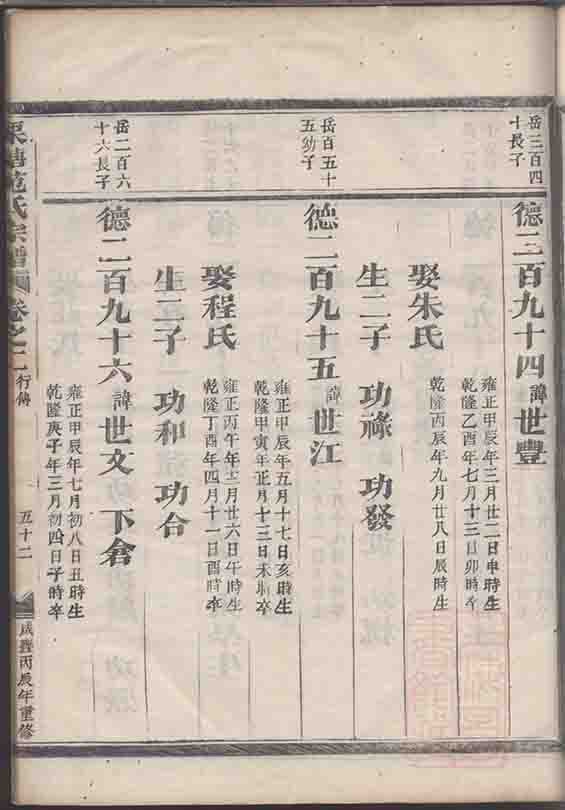 岳三百四
十長子
德二百九十四 諱世豐
雍正甲辰年三月廿二日申時生
乾隆乙酉年七月十三日卯時卒
娶朱氏
乾隆丙辰年九月廿八日辰時生
生二子 功祿 功發
岳百五十
五幼子
德二百九十五 諱世江
雍正甲辰年五月十七日亥時生
乾隆甲寅年正月十三日未時卒
娶程氏
雍正丙午年 月廿六日午時生
乾隆丁酉年四月十一日酉時卒
生二子 功和 功合
岳二百六
十六長子
德二百九十六 諱世文 下倉
雍正甲辰年七月初八日丑時生
乾隆庚子年三月初四日子時卒
渠塘范氏宗譜 卷之二 行傳 五十二 咸豐丙辰年重修